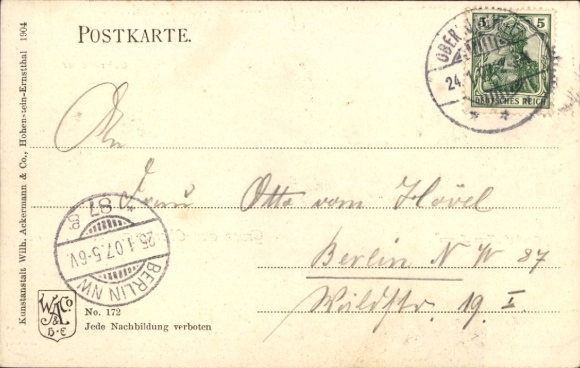 POSTKARTE.
5 5
DEUTSCHES REICH
OBER
24.
An
Frau Otto vom Hövel
Berlin N W 87
Waldstr. 19 I.
BERLIN NW
25.1.07.5-6V.
* 87
Kunstanstalt Wilh. Ackermann & Co., Hohenstein-Ernstthal 1904
W.A. & Co
H-E
No. 172
Jede Nachbildung verboten